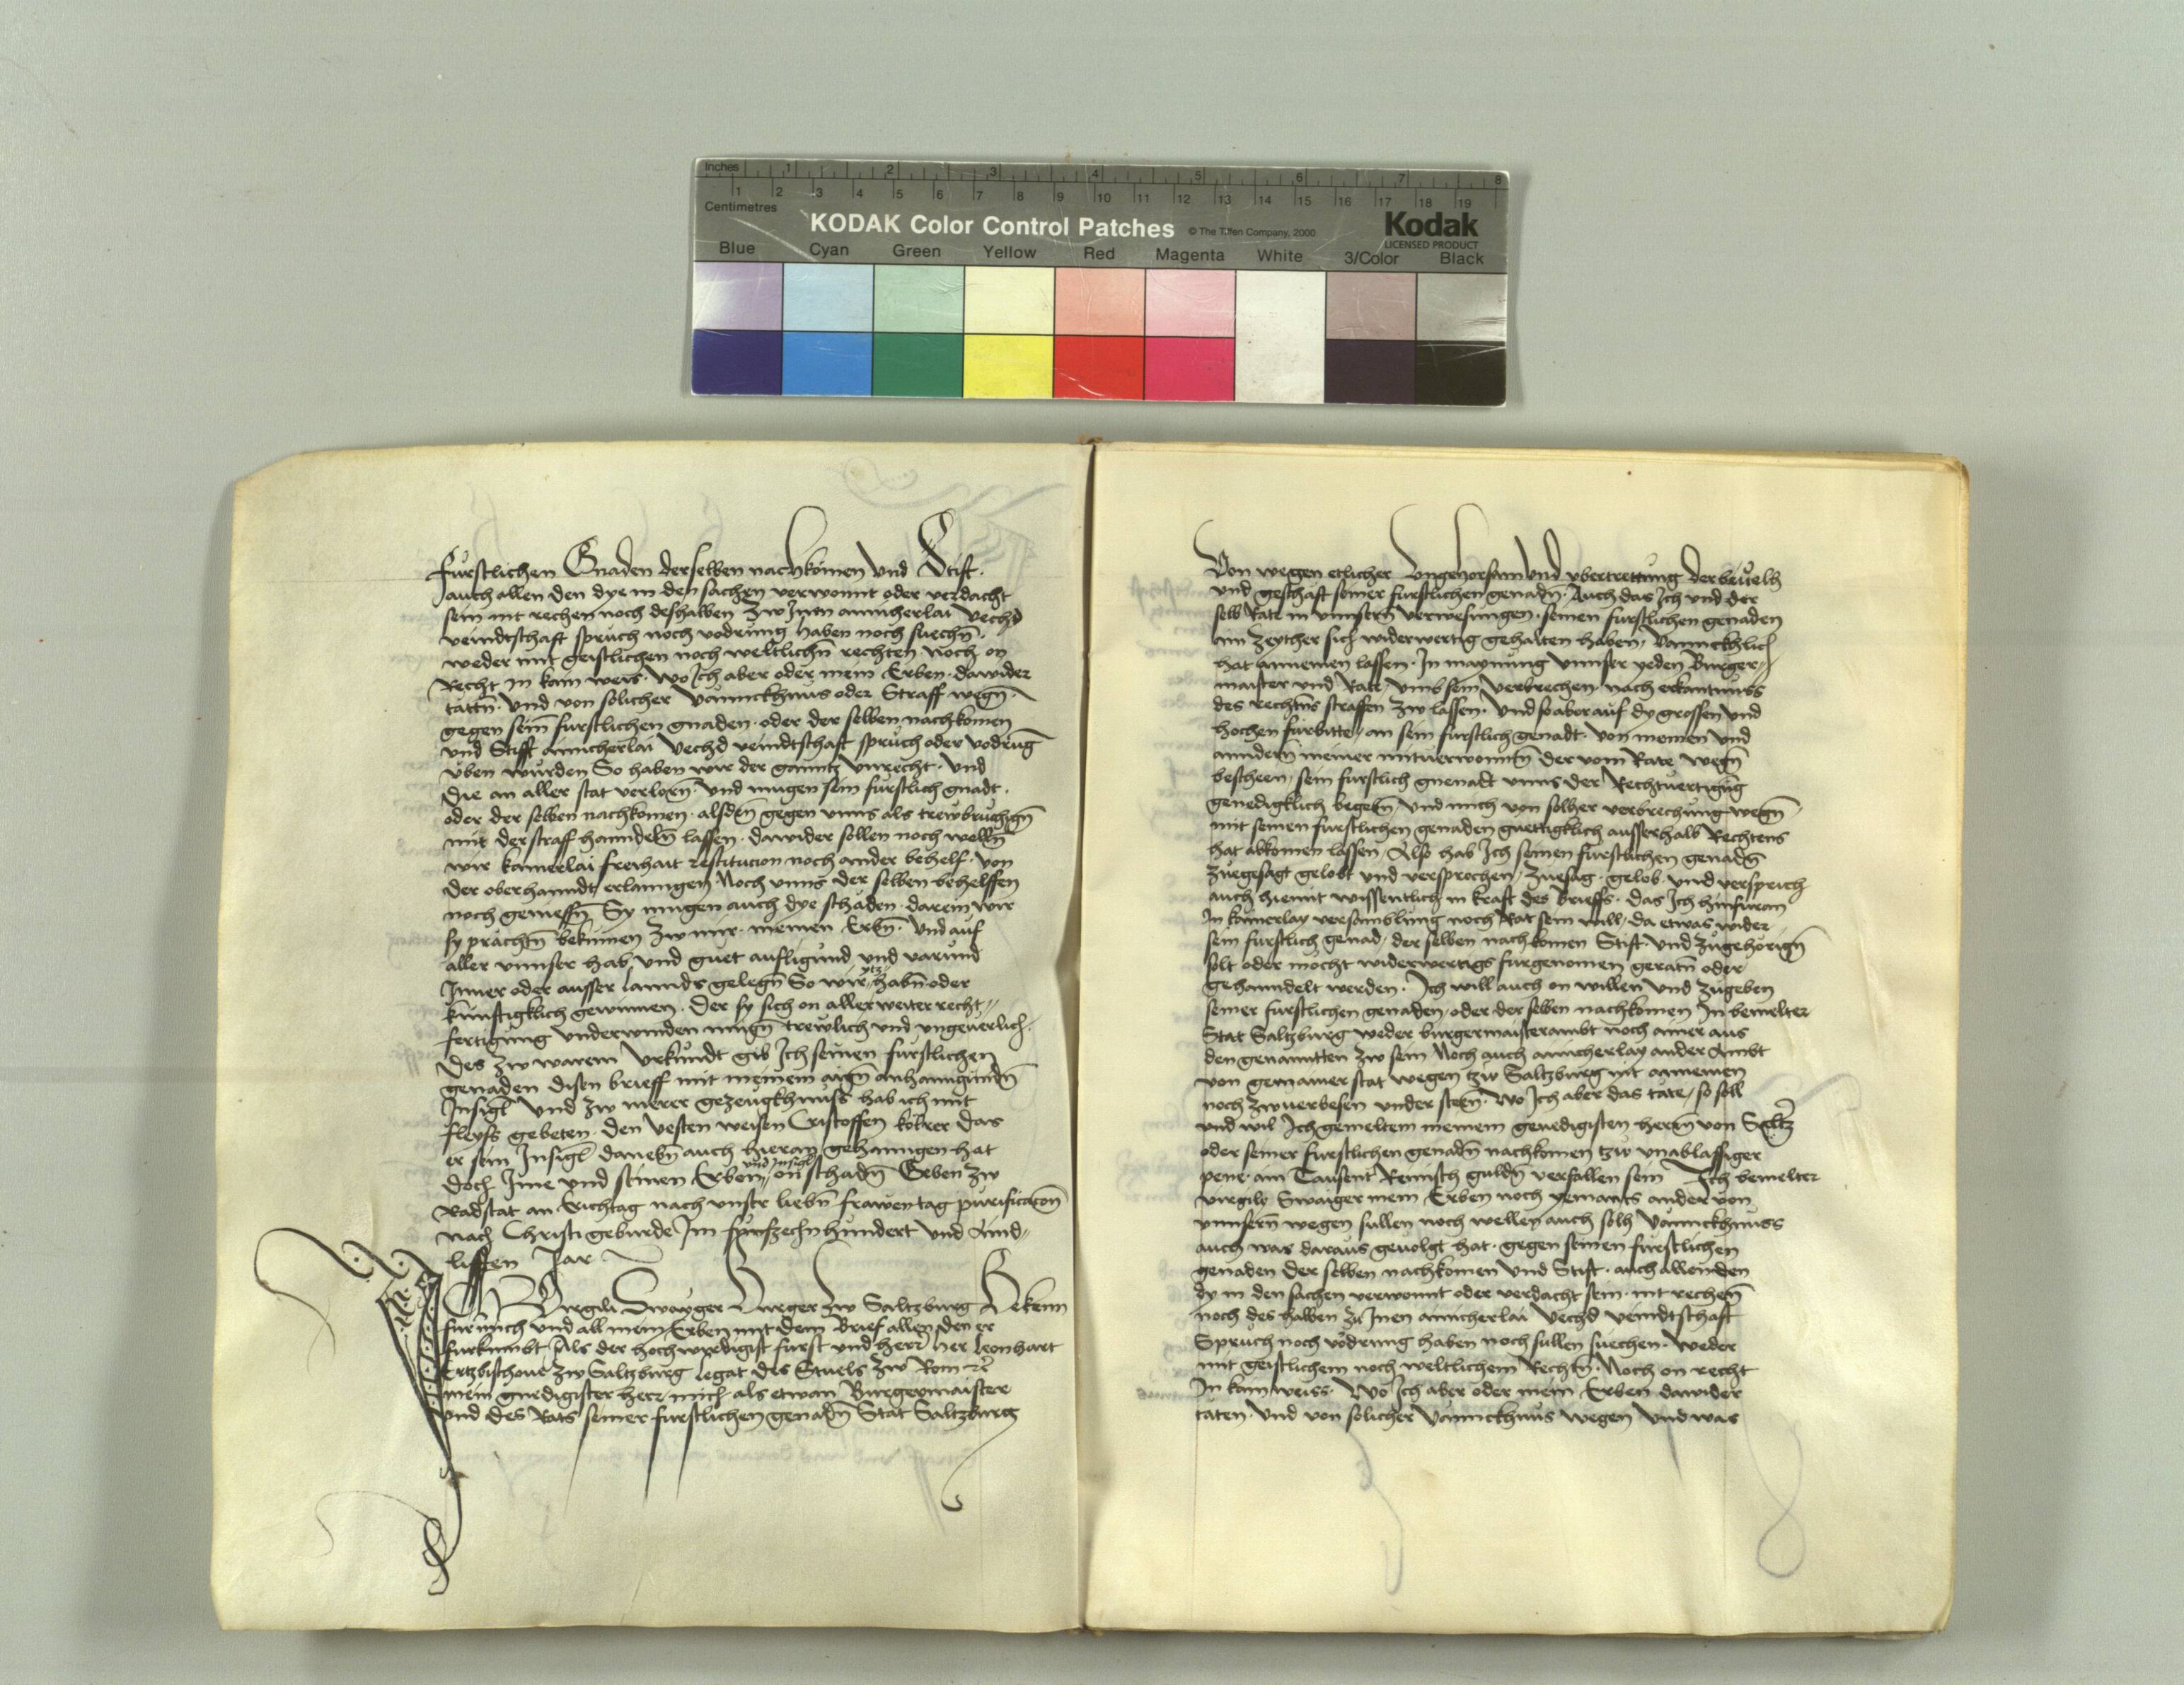 Inches 1 2 3 4 5 6 7 8
1 2 3 4 5 6 7 8 9 10 11 12 13 14 15 16 17 18 19
Centimetres
KODAK Color Control Patches © The Tiffen Company, 2000 Kodak
LICENSED PRODUCT
Blue Cyan Green Yellow Red Magenta White 3/Color Black
furstlichen Gnaden derselben nachkomen und Stift.
auch allen den dye in den sachen verwonnt oder verdacht
sein nit rechen noch deshalben zw Inen ainicherlai Vechd
veindtschaft spruch noch vodrung haben noch suechn.
weder mit geistlichen noch weltlichn rechten Noch on
Recht in kain weis. Wo Ich aber oder mein Erben. dawider
tattn. Und von solicher Vanncknus oder Straff wegn.
gegen sein furstlichen gnaden. oder der selben nachkomen
und Stifft ainicherlai Vechd veindtschaft spruch oder vodrug
uben wurden So haben wir der ganntz Unrecht. Und
die an aller stat verlorn. Und mugen sein furstlich gnadt.
oder der selben nachkomen. alsden gegen unns als trewbruchgn
mit der straff hanndeln lassen. dawider sollen noch welln
wir kainerlai freihait restitucion noch ander behelf. von
der oberhanndt erlanngen Noch unns der selben behelffen
noch geniessn Sy mugen auch dye schaden. darein wir
sy prachtn bekumen zw mir. meinen Erbn. Und auf
aller unnser hab und guet aufligund und varund
Inner oder ausser lannds gelegn So wir ytz habn oder
kunftigklich gewinnen. Der sy sich on aller weiter recht-
fertigung underwinden mugn trewlich und ungeuerlich.
Des zw warem Urkundt gib Ich seinen furstlichen
genaden disen brieff mit meinem aign anhanngundn
Insigl Und zw merer gezeugkhnuss hab ich mit
fleyss gebeten. den Vesten weisen Cristoffen kobrer das
er sein Insigl danebn auch hieran gehanngen hat
doch Ime und seinen Erben und Insigl on schadn Geben zw
Radstat an Erichtag nach unser liebn frawen tag purificacon
nach Christi geburde Im funfzechnhundert und Aind-
lifften Jar
Ich Virgili Swayger Burger zw Saltzburg Bekenn
fur mich und all mein Erben mit dem Brief allen den er
furkumbt Als der hochwirdigist furst und herr her Leonhart
Ertzbischoue zw Saltzburg Legat des Stuels zw Rom
mein gnedigister herr, mich als etwan Burgermaister
und des Rats seiner furstlichen genadn Stat Saltzburg
Von wegen etlicher Ungehorsam und ubertrettung der beuelh
und geschaft seiner furstlichen genadn. Auch das Ich und der
selb Rate in unnsern verwesungen. seinen furstlichen genaden
ein zeyther sich widerwertig gehalten haben, Vannckhlich
hat annemen lassen. In maynung unnser yeden Burger-
maister und Rate, umb sein verbrechen. nach erkantnuss
des rechtns straffen zw lassen. Und so aber auf dy grossen und
hochen furbitte, an sein furstlich genadt. von meinen und
anndern meiner mituerwonntn der vom Rate wegn
bescheen, sein furstlich gnenadt unns der Rechtuertigug
genedigklich begebn, und mich von solher verbrechung wegn
mit seinen furstlichen genaden guettigklich ausserhalb Rechtens
hat abkomen lassen, Also hab Ich seinen furstlichen genadn
zuegesagt gelobt und versprochen, zuesag. gelob. und versprich
auch hiemit wissentlich in kraft des brieffs. das Ich hinfuran
In kainerlay versamblung noch Rat sein will, da etwas wider
sein furstlich genad, der selben nachkomen Stift. und zugehorign
solt oder mocht widerwertigs furgenomen geratn oder
gehanndelt werden. Ich will auch on willen und zugeben
seiner furstlichen genaden, oder der selben nachkomen In bemelter
Stat Saltzburg weder burgermaisterambt noch ainer aus
den genanntten zw sein Noch auch ainicherlay ander Ambt
von gemainer stat wegen tzw Saltzburg nit annemen
noch zwuerbesen understen. Wo Ich aber das tate, so soll
und wil Ich gemeltem meinem genedigisten herrn von Saltz
oder seiner furstlichen genadn nachkomen tzw unablassiger
pene. ain Tausent Reinisch guldn verfallen sein Ich bemelter
virgily Swaiger mein Erben noch yemants ander von
unnsern wegen sullen noch wellen auch solh Vannckhnuss
auch was daraus geuolgt hat. gegen seinen furstlichen
genaden der selben nachkomen und Stift. auch allen den
dy in den sachen verwonnt oder verdacht sein. nit rechen
noch des halben zu Inen ainicherlai Vechd veindtschaft
Spruch noch vodrung haben noch sullen suechen. weder
mit geistlichem noch weltlichem Rechtn. Noch on recht
In kain weiss. Wo Ich aber oder mein Erben dawider
taten. Und von solicher Vanncknus wegen Und was